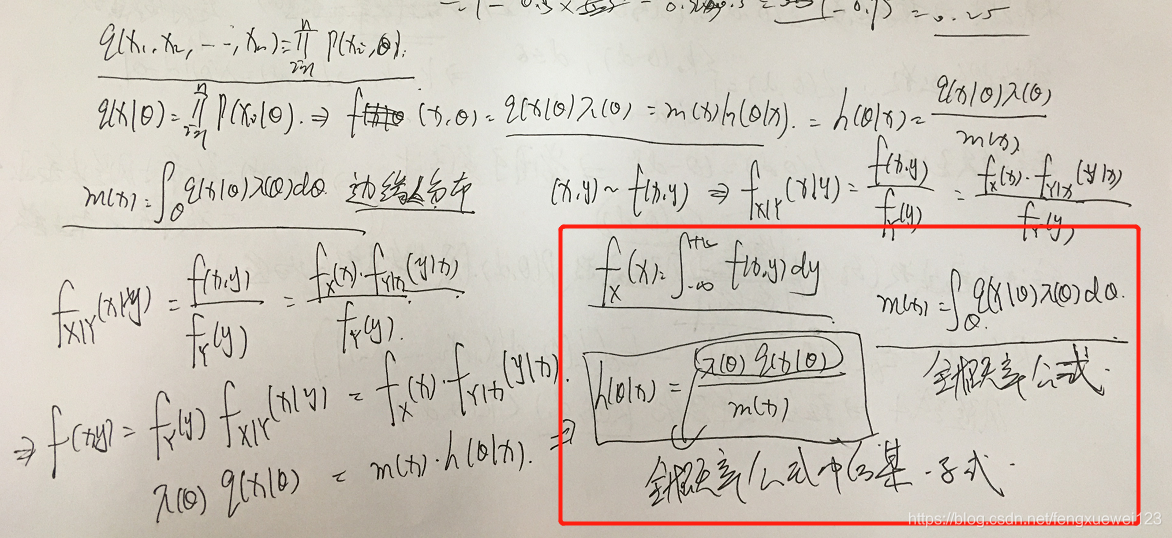 = 0.25
q(x₁, x₂, ---, xₙ) = ∏ⁿᵢ₌₁ P(xᵢ, θ).
q(x|θ) = ∏ⁿᵢ₌₁ P(xᵢ|θ). ⇒ f (x, θ) = q(x|θ)λ(θ) = m(x)h(θ|x). = h(θ|x) = q(x|θ)λ(θ) / m(x)
m(x) = ∫_Θ q(x|θ)λ(θ)dθ. 边缘分布
(x,y) ~ f(x,y) ⇒ f_X|Y(x|y) = f(x,y) / f_Y(y) = f_X(x)·f_Y|X(y|x) / f_Y(y)
f_X|Y(x|y) = f(x,y) / f_Y(y) = f_X(x)·f_Y|X(y|x) / f_Y(y).
⇒ f(x,y) = f_Y(y) f_X|Y(x|y) = f_X(x)·f_Y|X(y|x).
λ(θ) q(x|θ) = m(x)·h(θ|x). ⇒
f_X(x) = ∫₋∞⁺∞ f(x,y)dy
m(x) = ∫_Θ q(x|θ)λ(θ)dθ.
全概率公式.
h(θ|x) = λ(θ) q(x|θ) / m(x)
全概率公式中的某一子式.
https://blog.csdn.net/fengxuewei123